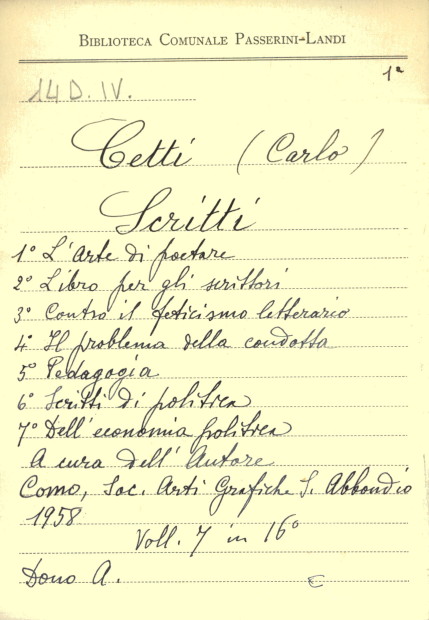 BIBLIOTECA COMUNALE PASSERINI-LANDI
1ª
14 D. IV.
Cetti (Carlo)
Scritti
1° L'Arte di poetare
2° Libro per gli scrittori
3° Contro il feticismo letterario
4° Il problema della condotta
5° Pedagogia
6° Scritti di politica
7° Dell'economia politica
A cura dell'Autore
Como, Soc. Arti Grafiche S. Abbondio
1958
Voll. 7 in 16°
Dono A.
C